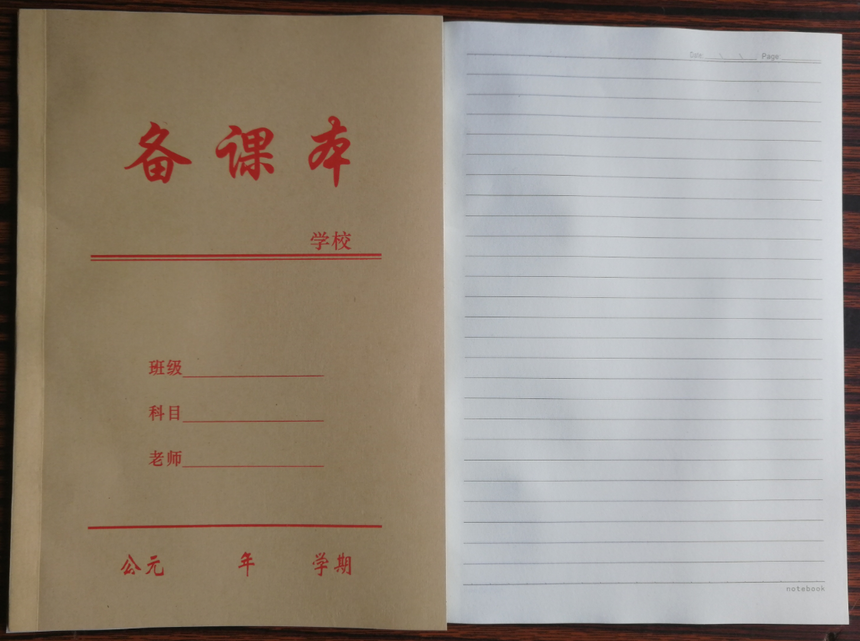 备课本
学校
班级
科目
老师
公元 年 学期
Date \ \ Page
notebook